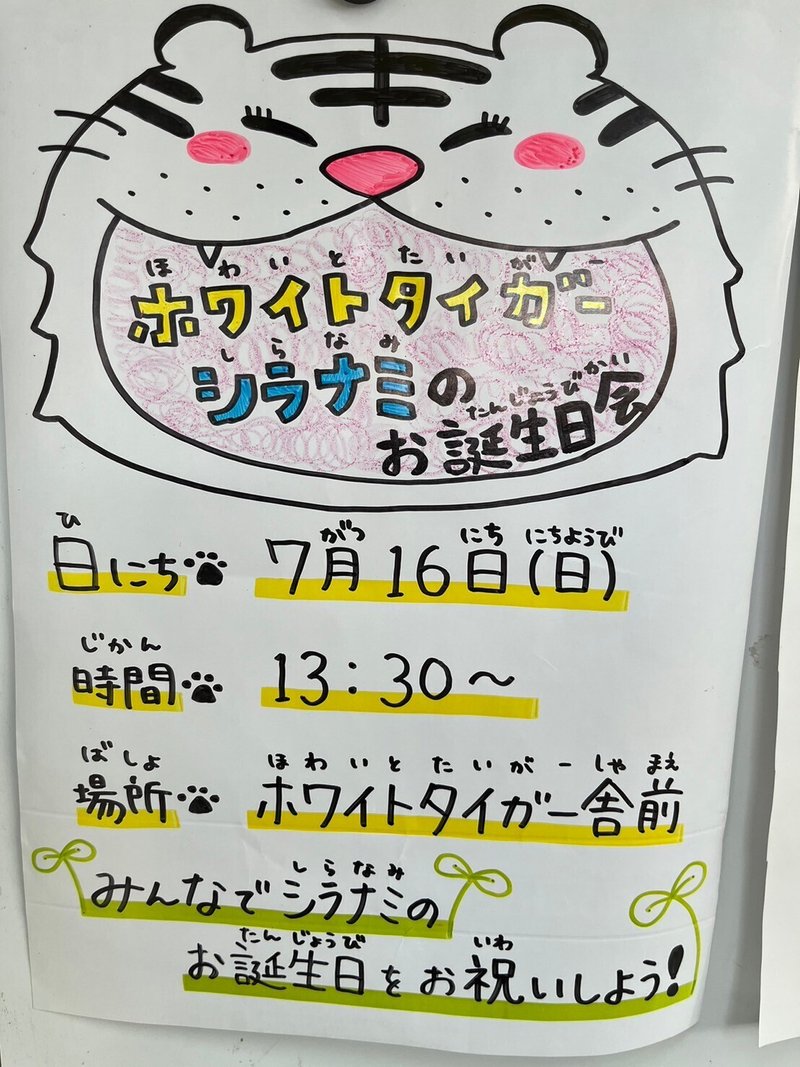 ほわいとたいがー
ホワイトタイガー
しらなみ
シラナミの
たんじょうびかい
お誕生日会
ひ
日にち
がつ にち にちようび
7月16日(日)
じかん
時間
13:30～
ばしょ
場所
ほわいとたいがーしゃまえ
ホワイトタイガー舎前
しらなみ
みんなでシラナミの
たんじょうび いわ
お誕生日をお祝いしよう!